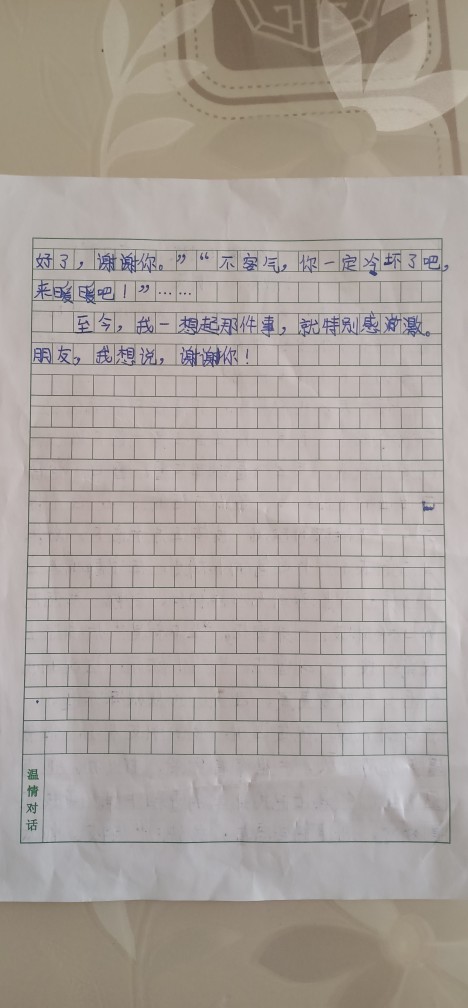 好了，谢谢你。”“不客气，你一定冷坏了吧，
来暖暖吧！”……
至今，我一想起那件事，就特别感激。
朋友，我想说，谢谢你！
温情对话